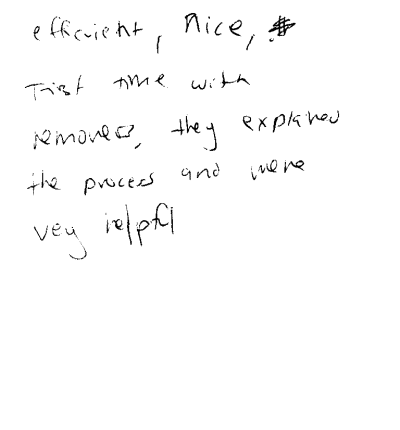 efficient, nice,
First time with
removers, they explained
the process and were
very helpful